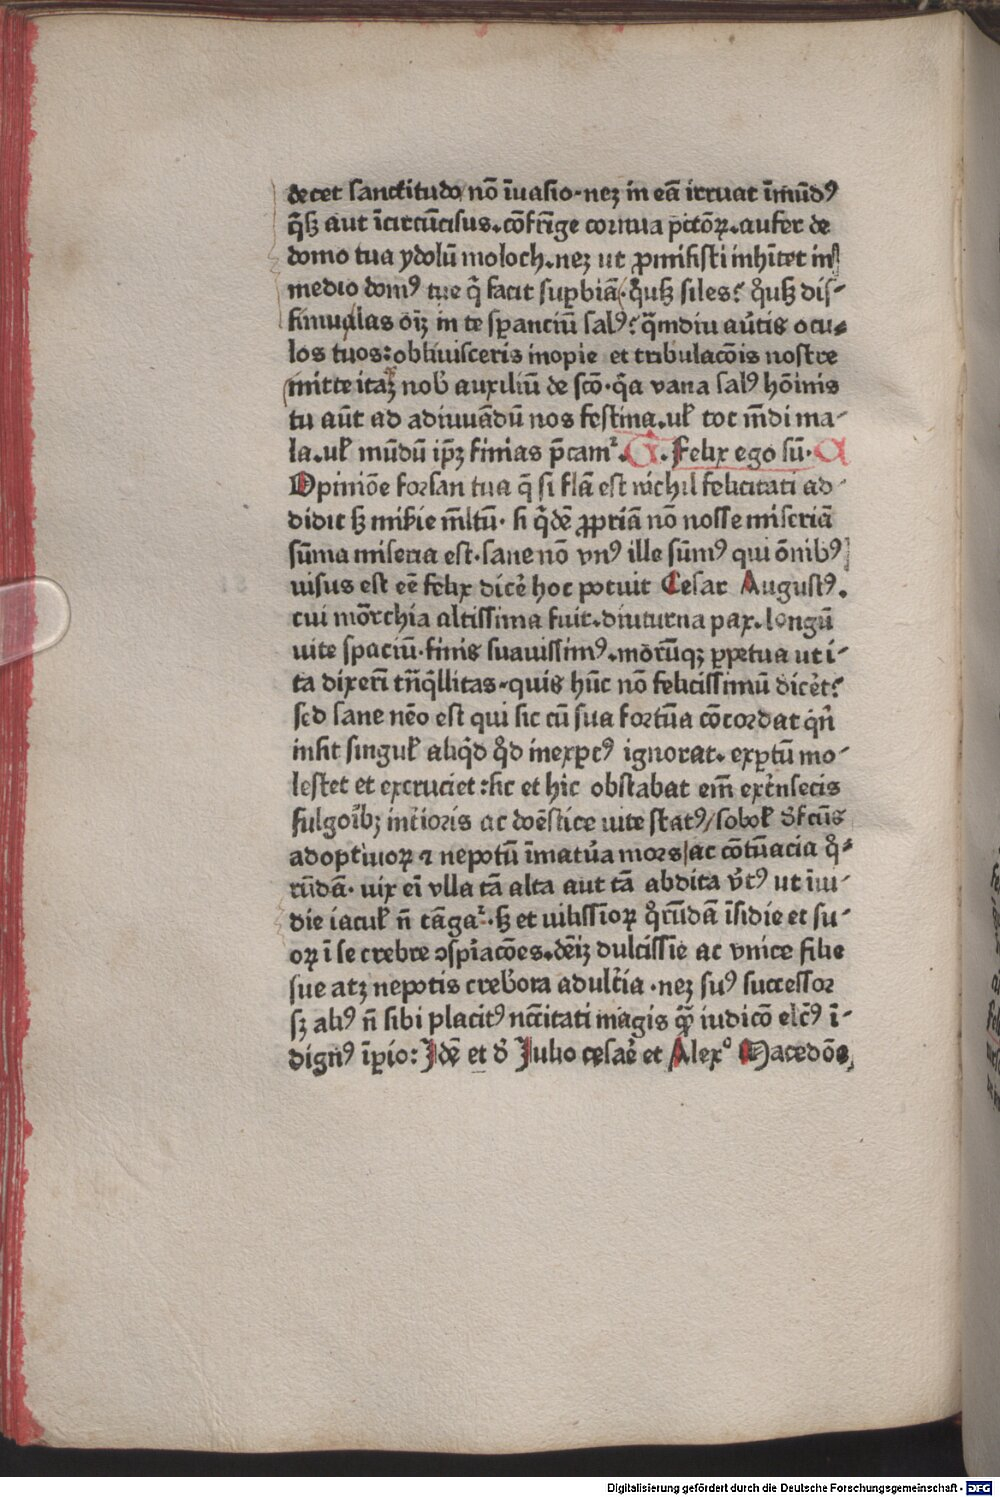 decet sanctitudo nō īuasio·neꝫ in eā irruat īmūdꝰ
q̄ſꝫ aut īcircūcisus.cōfrīge cornua pctōꝝ.aufer de
domo tua ydolū moloch.neꝫ ut ꝓmisisti inhītet in
medio domꝰ tue q̄ facit supbiā·q̊usꝫ siles? q̊usꝫ dis-
simulas oīꝫ in te speranciū salꝰ? q̄mdiu aūtis ocu-
los tuos: obliuisceris inopie et tribulacōis nostre
mitte itaꝫ nob̄ auxiliū de scō·q̄a vana salꝰ hōinis
tu aūt ad adiuuādū nos festina.ul̄ tot m̄di ma-
la.ul̄ mūdū ip̄ꝫ finias p̄camᷣ. G. Felix ego sū.
Opiniōe forsan tua q̄ si flā est nichil felicitati ad-
didit sꝫ miſie m̄ltū· si q̄dē ꝓpriā nō nosse miseriā
sūma miseria est·sane nō vnꝰ ille sūmꝰ qui ōnibꝰ
uisus est eē felix dicē hoc potuit Cesar Augustꝰ.
cui mōrchia altissima fuit.diuturna pax.longū
uite spaciū·finis suauissimꝰ.mōrūqꝫ ꝑpetua ut i-
ta dixerī trāq̊llitas·quis hūc nō felicissimū dicēt?
sed sane nēo est qui sic cū sua fortūa cōcordat q̊n̄
insit singul̄ aliq̊d q̊d inexpertꝰ ignorat. exptū mo-
lestet et excruciet:sic et hic obstabat em̄ extīnsecis
fulgoībꝫ inīioris ac doēstice uite statꝰ/sobol̄ d̄fcūs
adoptīuoꝝ ⁊ nepotū īmatūa mors/ac cōtūacia q̊-
rūdā· uix eī vlla tā alta aut tā abdita v̄tꝰ ut īui-
die iacul̄ n̄ tāgaᷣ.sꝫ et uilissīoꝝ q̊rūdā īsidie et su-
oꝝ ī se crebre ↄspīacōes.dēiꝫ dulcissīe ac vnice filie
sue atꝫ nepotis creb̄ora adultīa·neꝫ suꝰ successor
sꝫ aliꝰ n̄ sibi placitꝰ nccītati magis q̄ꝫ iudicō elc̄ꝰ ī-
dignꝰ īꝑio: Idē et d̄ Julio cesaē et Alexº Macedōe,
Digitalisierung gefördert durch die Deutsche Forschungsgemeinschaft - DFG